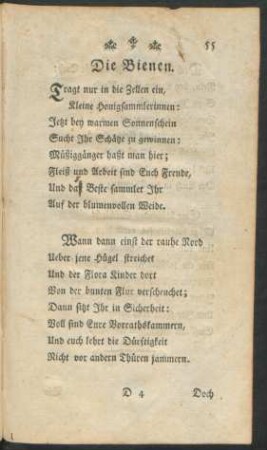 55
Die Bienen.
Tragt nur in die Zellen ein,
Kleine Honigsammlerinnen:
Jetzt bey warmen Sonnenschein
Sucht Ihr Schätze zu gewinnen:
Müßiggänger haßt man hier;
Fleiß und Arbeit sind Euch Freude,
Und das Beste sammlet Ihr
Auf der blumenvollen Weide.
Wann dann einst der rauhe Nord
Ueber jene Hügel streichet
Und der Flora Kinder dort
Von der bunten Flur verscheuchet;
Dann sitzt Ihr in Sicherheit:
Voll sind Eure Vorrathskammern,
Und euch lehrt die Dürftigkeit
Nicht vor andern Thüren jammern.
D 4 Doch